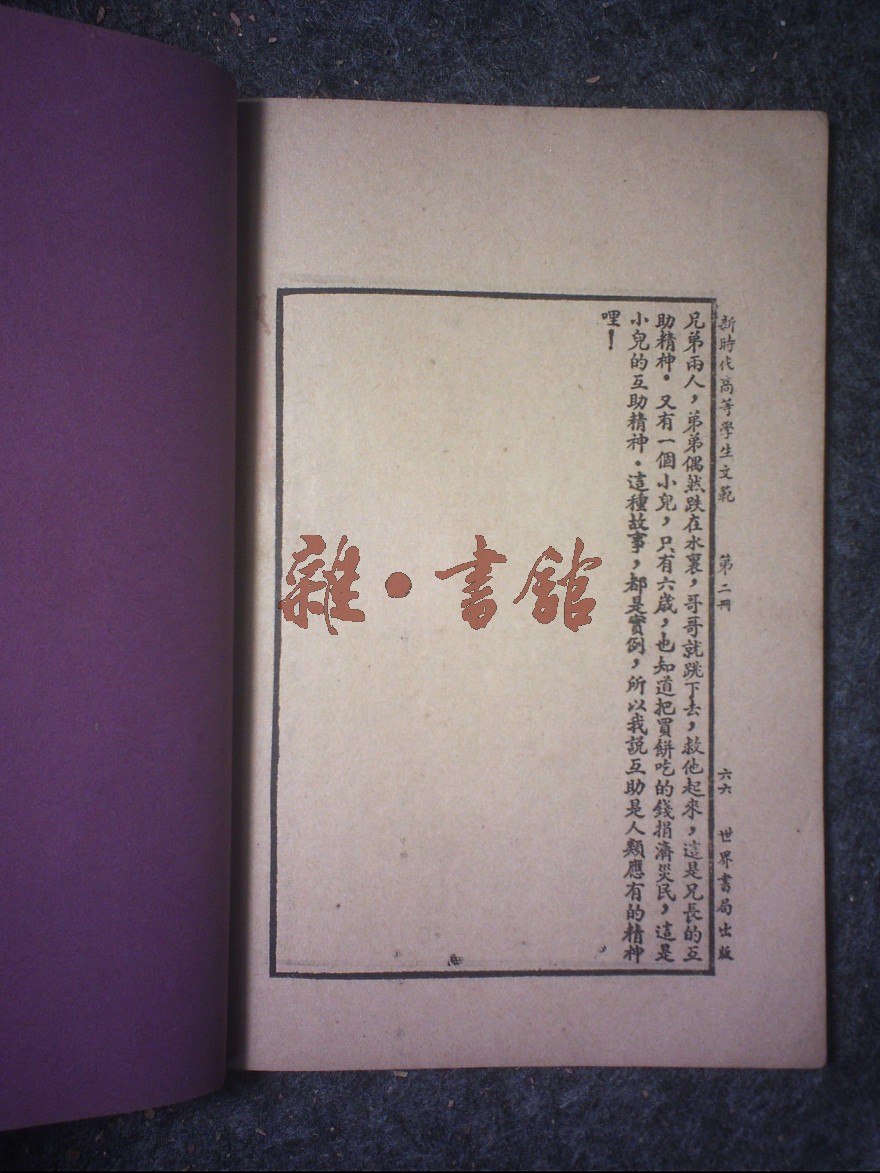 新時代高等學生文範 第二冊 六六 世界書局出版
兄弟兩人，弟弟偶然跌在水裏，哥哥就跳下去，救他起來，這是兄長的互
助精神．又有一個小兒，只有六歲，也知道把買餅吃的錢捐濟災民，這是
小兒的互助精神．這種故事，都是實例，所以我說互助是人類應有的精神
哩！
雜·書館